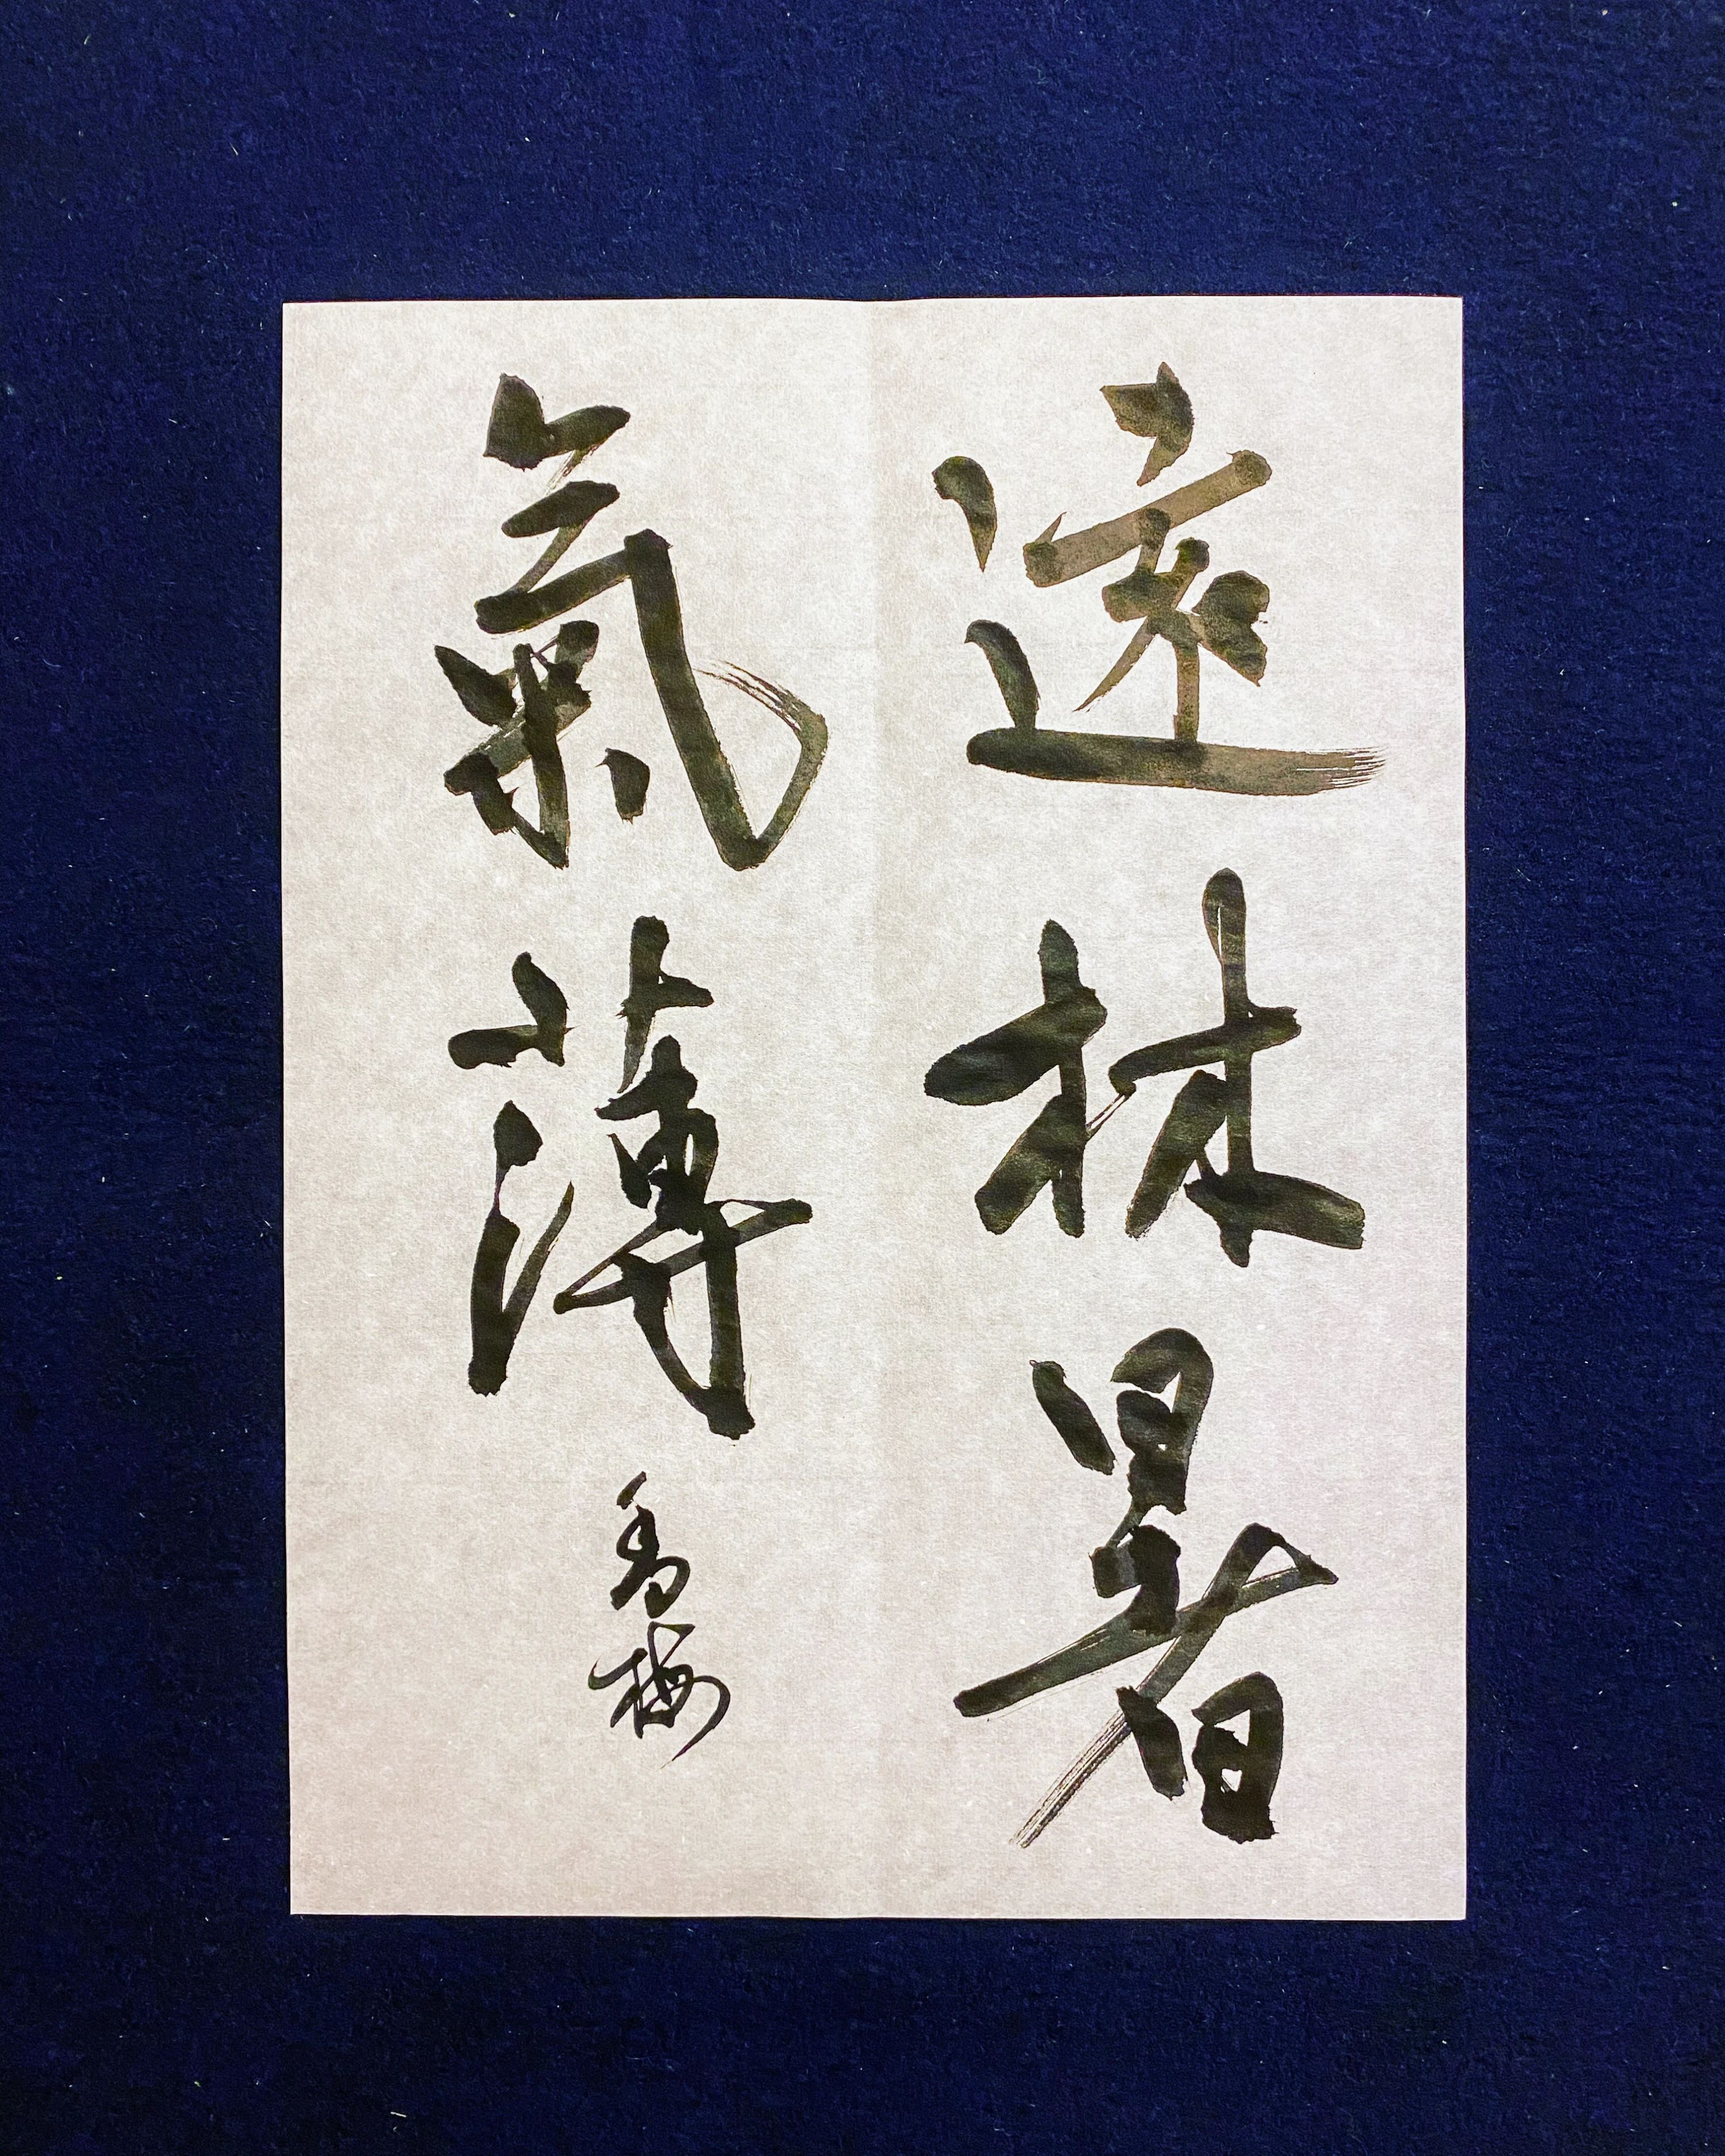 遠林暑
氣薄
香梅